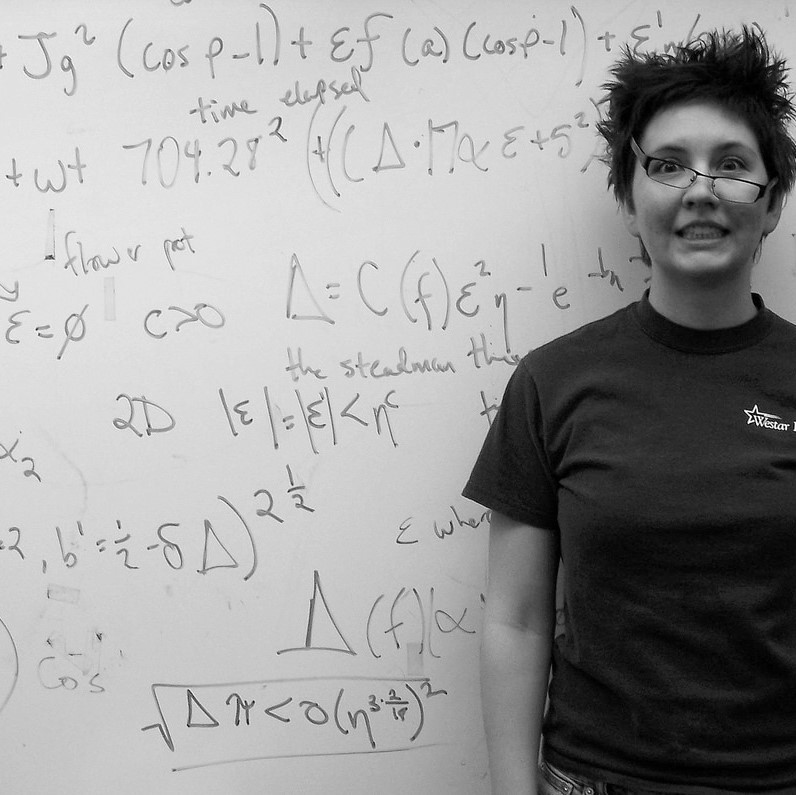 + Jg² (cos ρ-1) + εf (a) (cosρ-1) + ε'n
time elapsed
+ wt 704.28² + ((Δ·17α ε+5²)
flower pot
Δ = C (f) ε² η⁻¹ e
ε = ∅ c>0
the steadman
2D |ε|=|ε'|<ηᶜ
α₂
2, b'=½-δ Δ) 2^½
ε where
Δ (f)(α'
Cos
√Δπ < o(η^3·2/18)²
Westar